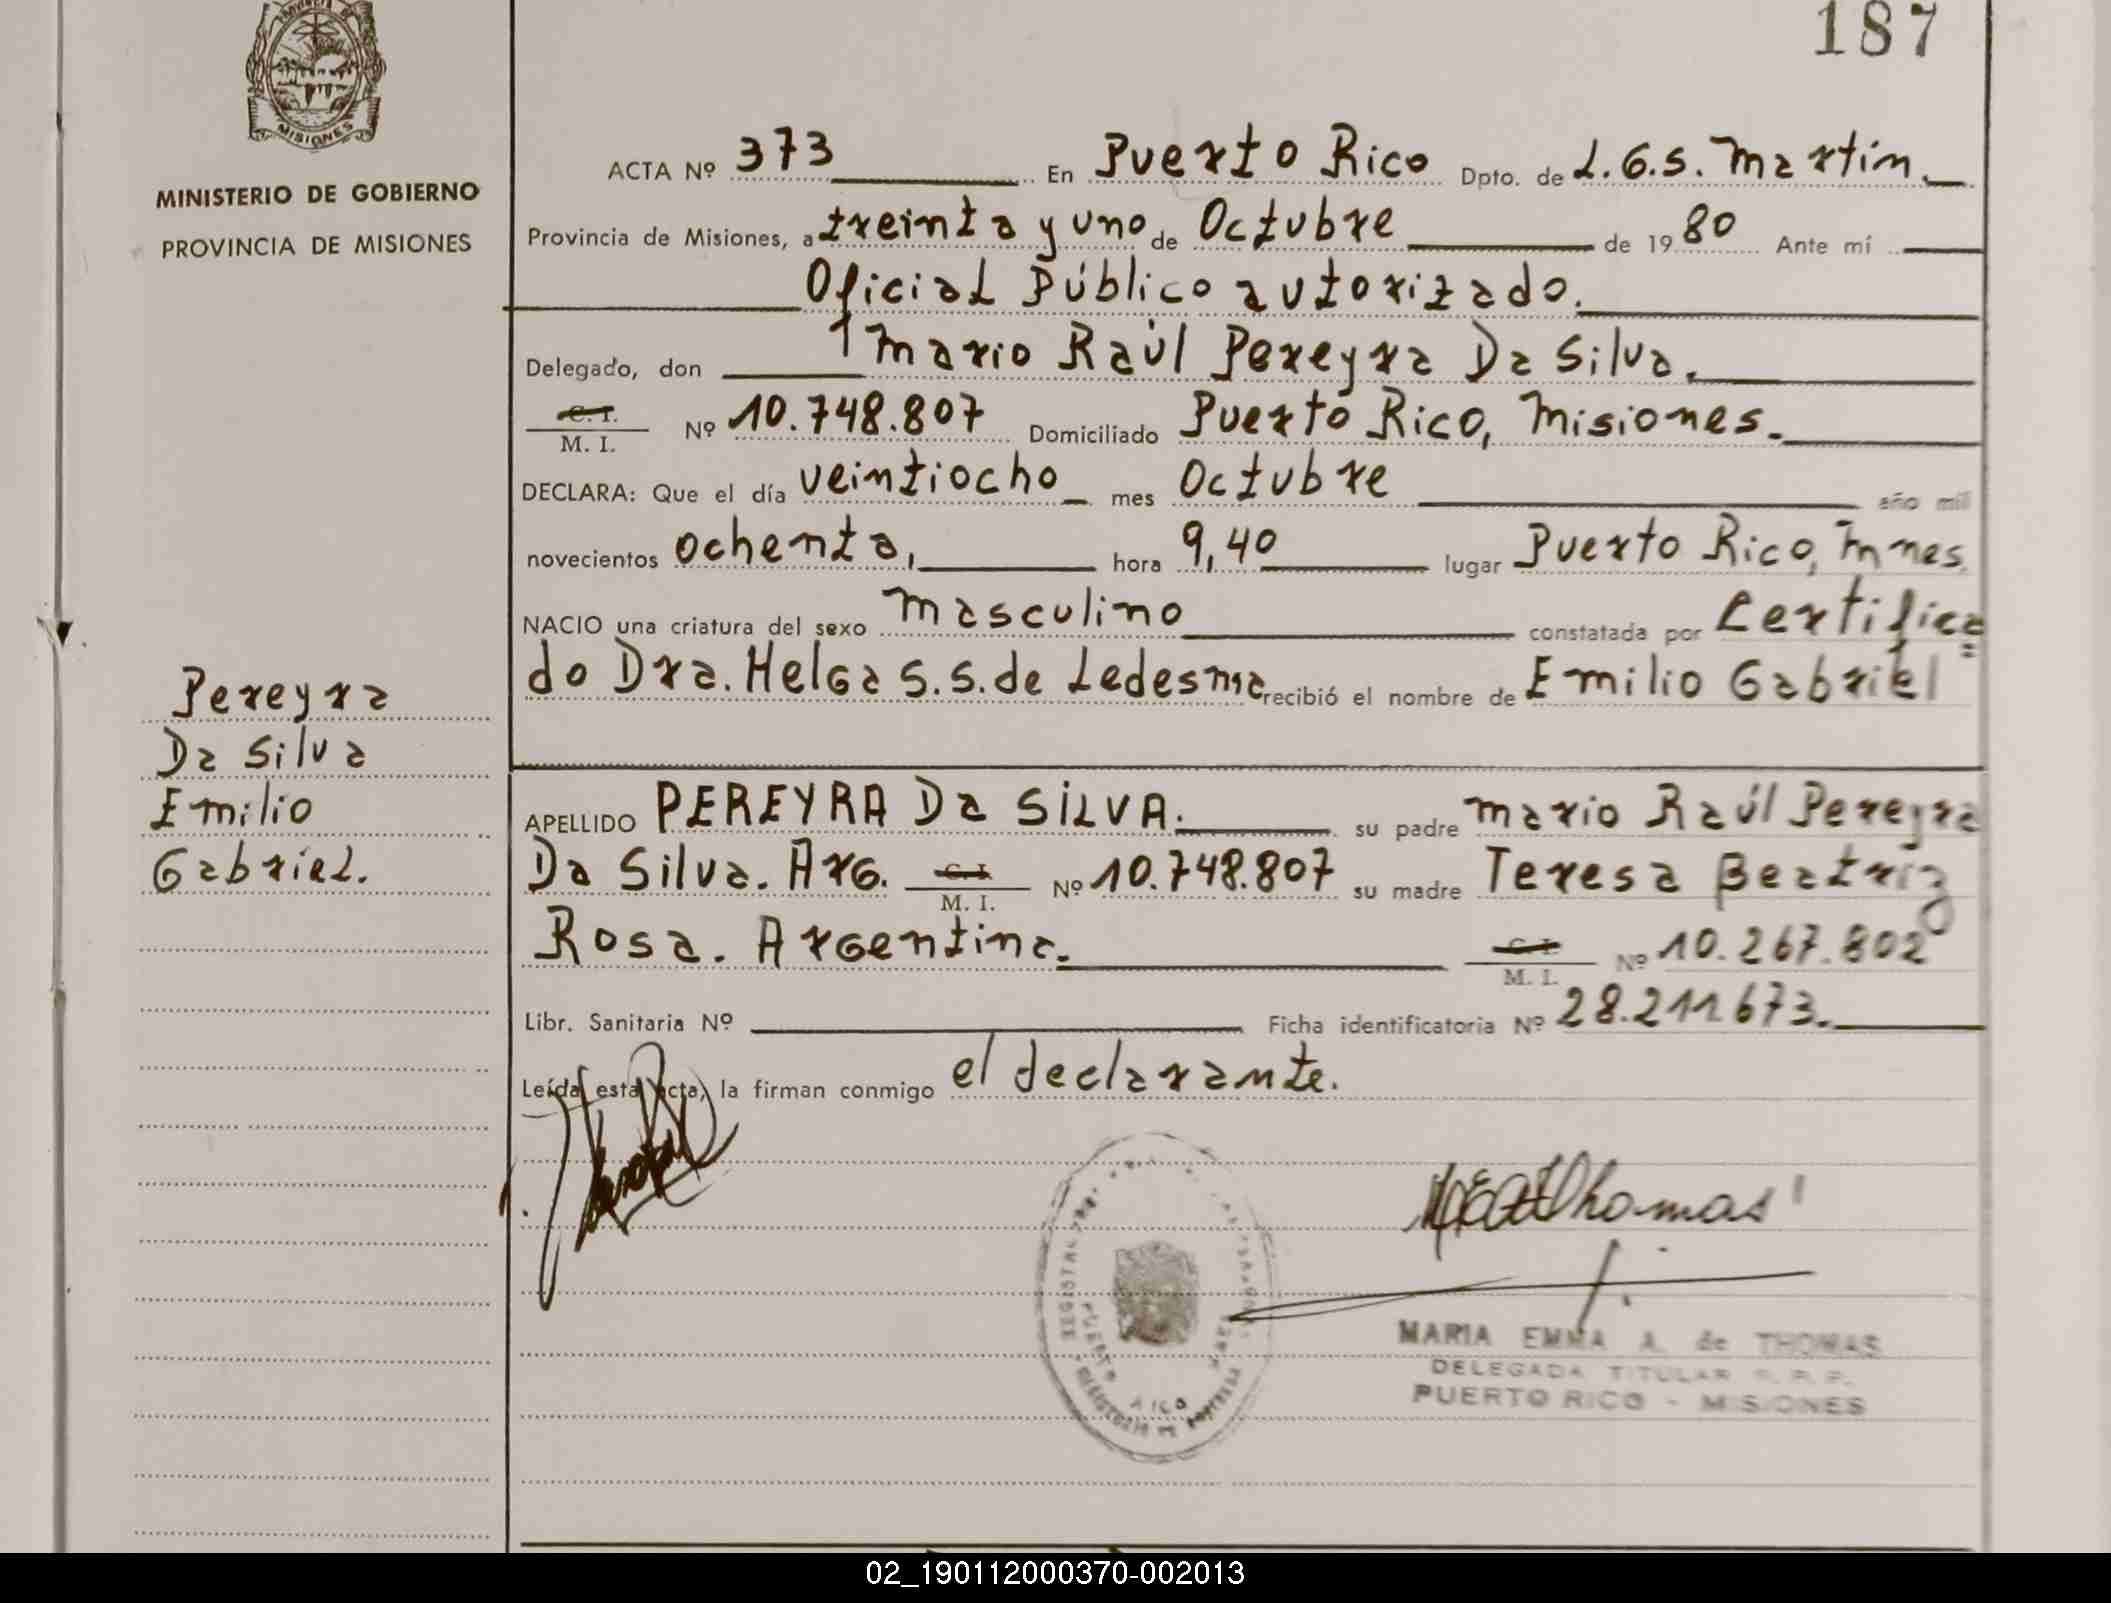 187
MISIONES
MINISTERIO DE GOBIERNO
PROVINCIA DE MISIONES
Pereyra
Da Silva
Emilio
Gabriel.
ACTA Nº 373 En Puerto Rico Dpto. de L.G.S. Martín.
Provincia de Misiones, a treinta y uno de Octubre de 1980 Ante mí
Oficial Público autorizado.
Delegado, don Mario Raúl Pereyra Da Silva.
C. I.
M. I. Nº 10.748.807 Domiciliado Puerto Rico, Misiones.
DECLARA: Que el día veintiocho mes Octubre año mil
novecientos ochenta, hora 9,40 lugar Puerto Rico, Mnes.
NACIO una criatura del sexo masculino constatada por Certifica
do Dra. Helga S.S. de Ledesma recibió el nombre de Emilio Gabriel
APELLIDO PEREYRA Da SILVA. su padre Mario Raúl Pereyra
Da Silva. Arg. C. I. M. I. Nº 10.748.807 su madre Teresa Beatriz
Rosa. Argentina. C. I. M. I. Nº 10.267.802
Libr. Sanitaria Nº Ficha identificatoria Nº 28.211.673.
Leída esta acta, la firman conmigo el declarante.
Thomas
PUERTO RICO
MARIA EMMA A. de THOMAS
DELEGADA TITULAR
PUERTO RICO - MISIONES
02_190112000370-002013